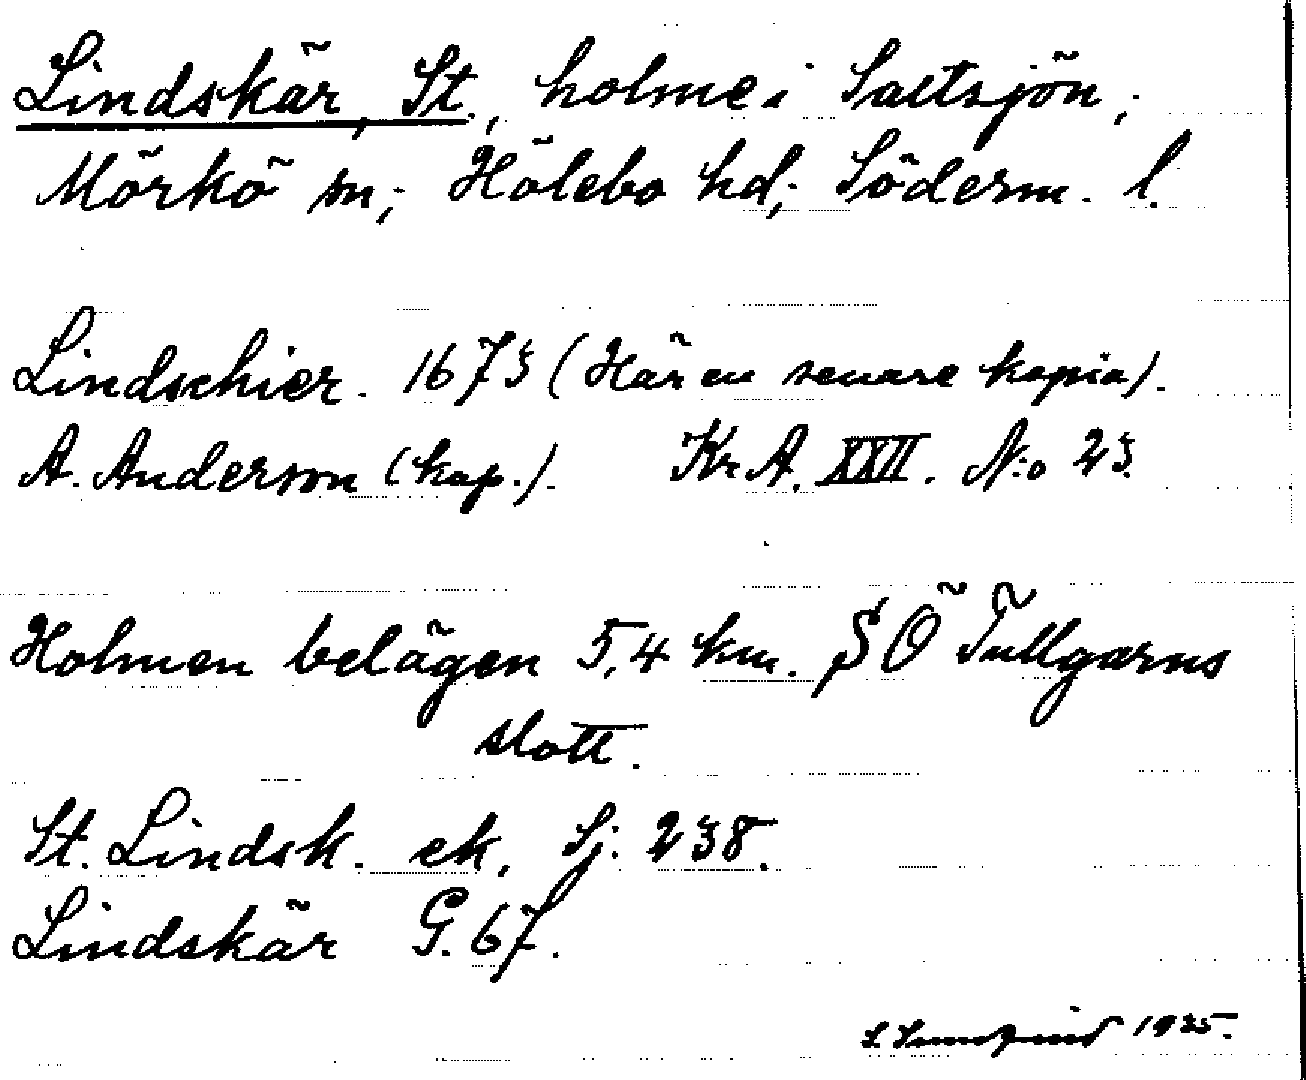 Lindskär, St., holme i Saltsjön,
Mörkö sn; Hölebo hd; Söderm. l.
Lindschier. 1673 (Här en senare kopia).
A. Anderson (kap.). Kr. A. XXII. N:o 23
Holmen belägen 5,4 km. SÖ Tullgarns
slott.
St. Lindsk. ek. Sj. 238.
Lindskär G. 67.
1935.